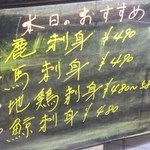 本日のおすすめ
鹿刺身 ¥490
馬刺身 ¥490
地鶏刺身 ¥480～
鯨刺身 ¥480